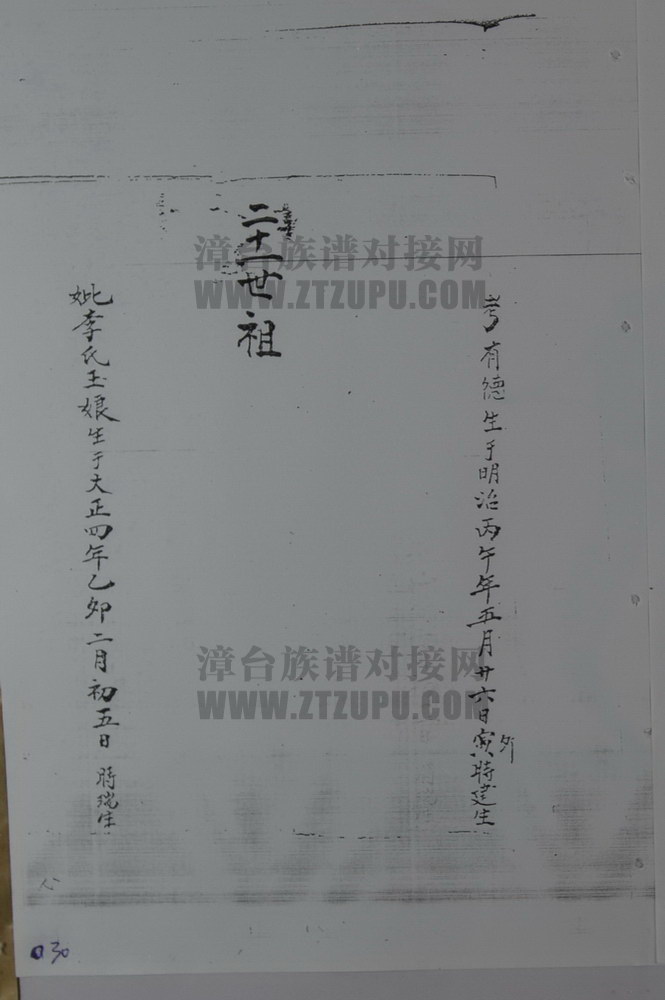 考有德生于明治丙午年五月廿六日寅卯時建生
二十一世祖
妣李氏玉娘生于大正四年乙卯二月初五日 時瑞生
漳台族谱对接网
WWW.ZTZUPU.COM
漳台族谱对接网
WWW.ZTZUPU.COM
030